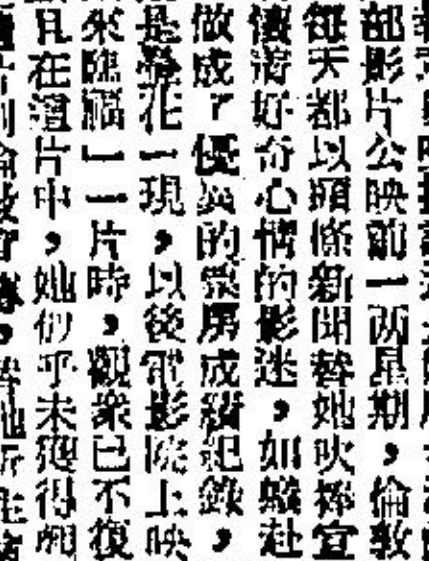 部影片公映前一两星期，倫敦
每天都以頭條新聞替她吹捧宣
懷着好奇心情的影迷，如蟻赴
做成了優異的票房成績紀錄，
是曇花一現，以後電影院上映
來臨福一一片時，觀衆已不復
且在這片中，她似乎未獲得